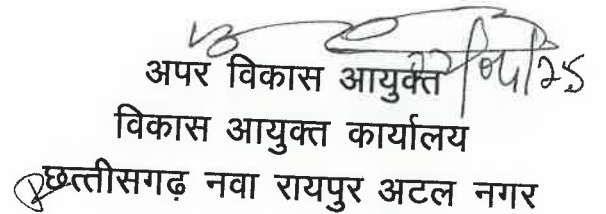 अपर विकास आयुक्त
विकास आयुक्त कार्यालय
छत्तीसगढ़ नवा रायपुर अटल नगर